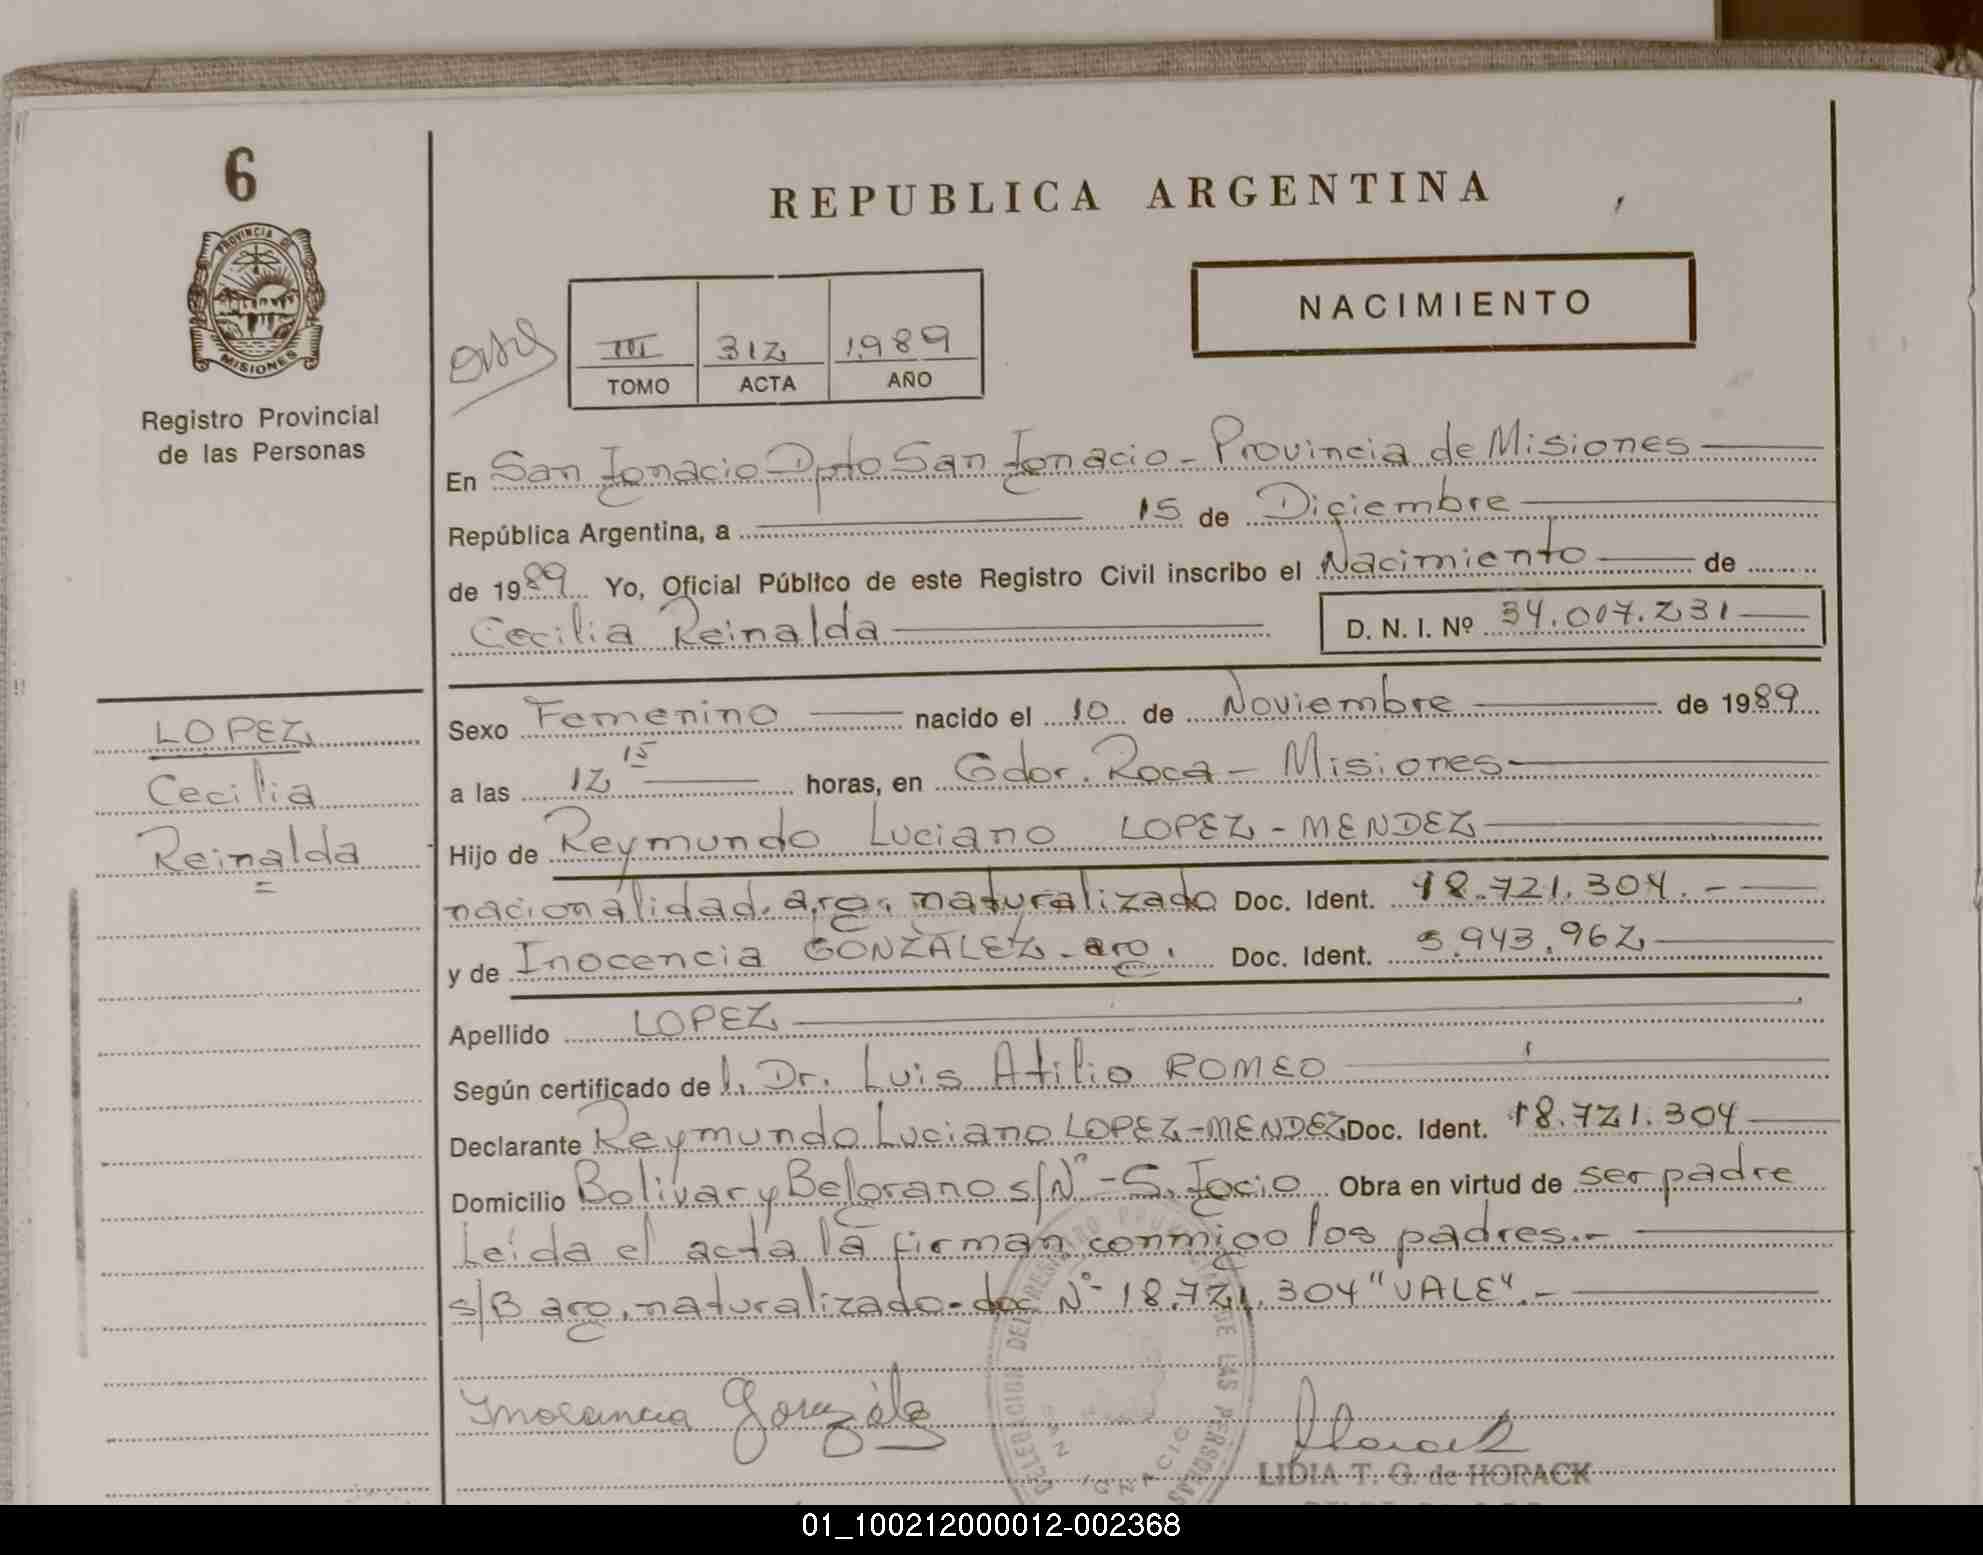 6
PROVINCIA DE
MISIONES
Registro Provincial
de las Personas
LOPEZ
Cecilia
Reinalda
REPUBLICA ARGENTINA
NACIMIENTO
III 312 1989
TOMO ACTA AÑO
En San Ignacio Dpto San Ignacio - Provincia de Misiones
República Argentina, a 15 de Diciembre
de 1989 Yo, Oficial Público de este Registro Civil inscribo el Nacimiento de
Cecilia Reinalda D. N. I. Nº 34.007.231
Sexo Femenino nacido el 10 de Noviembre de 1989
a las 12 15 horas, en Gdor. Roca - Misiones
Hijo de Reymundo Luciano LOPEZ - MENDEZ
nacionalidad. arg. naturalizado Doc. Ident. 18.721.304.-
y de Inocencia GONZALEZ - arg. Doc. Ident. 5.943.962
Apellido LOPEZ
Según certificado de l. Dr. Luis Atilio ROMEO
Declarante Reymundo Luciano LOPEZ-MENDEZ Doc. Ident. 18.721.304
Domicilio Bolívar y Belgrano s/Nº - S. Igcio Obra en virtud de ser padre
Leída el acta la firman conmigo los padres.-
s/B arg. naturalizado - doc Nº 18.721.304 "VALE".-
Inocencia González
DEL REGISTRO PROVINCIAL DE LAS PERSONAS
SAN IGNACIO
LIDIA T. G. de HORACK
01_100212000012-002368